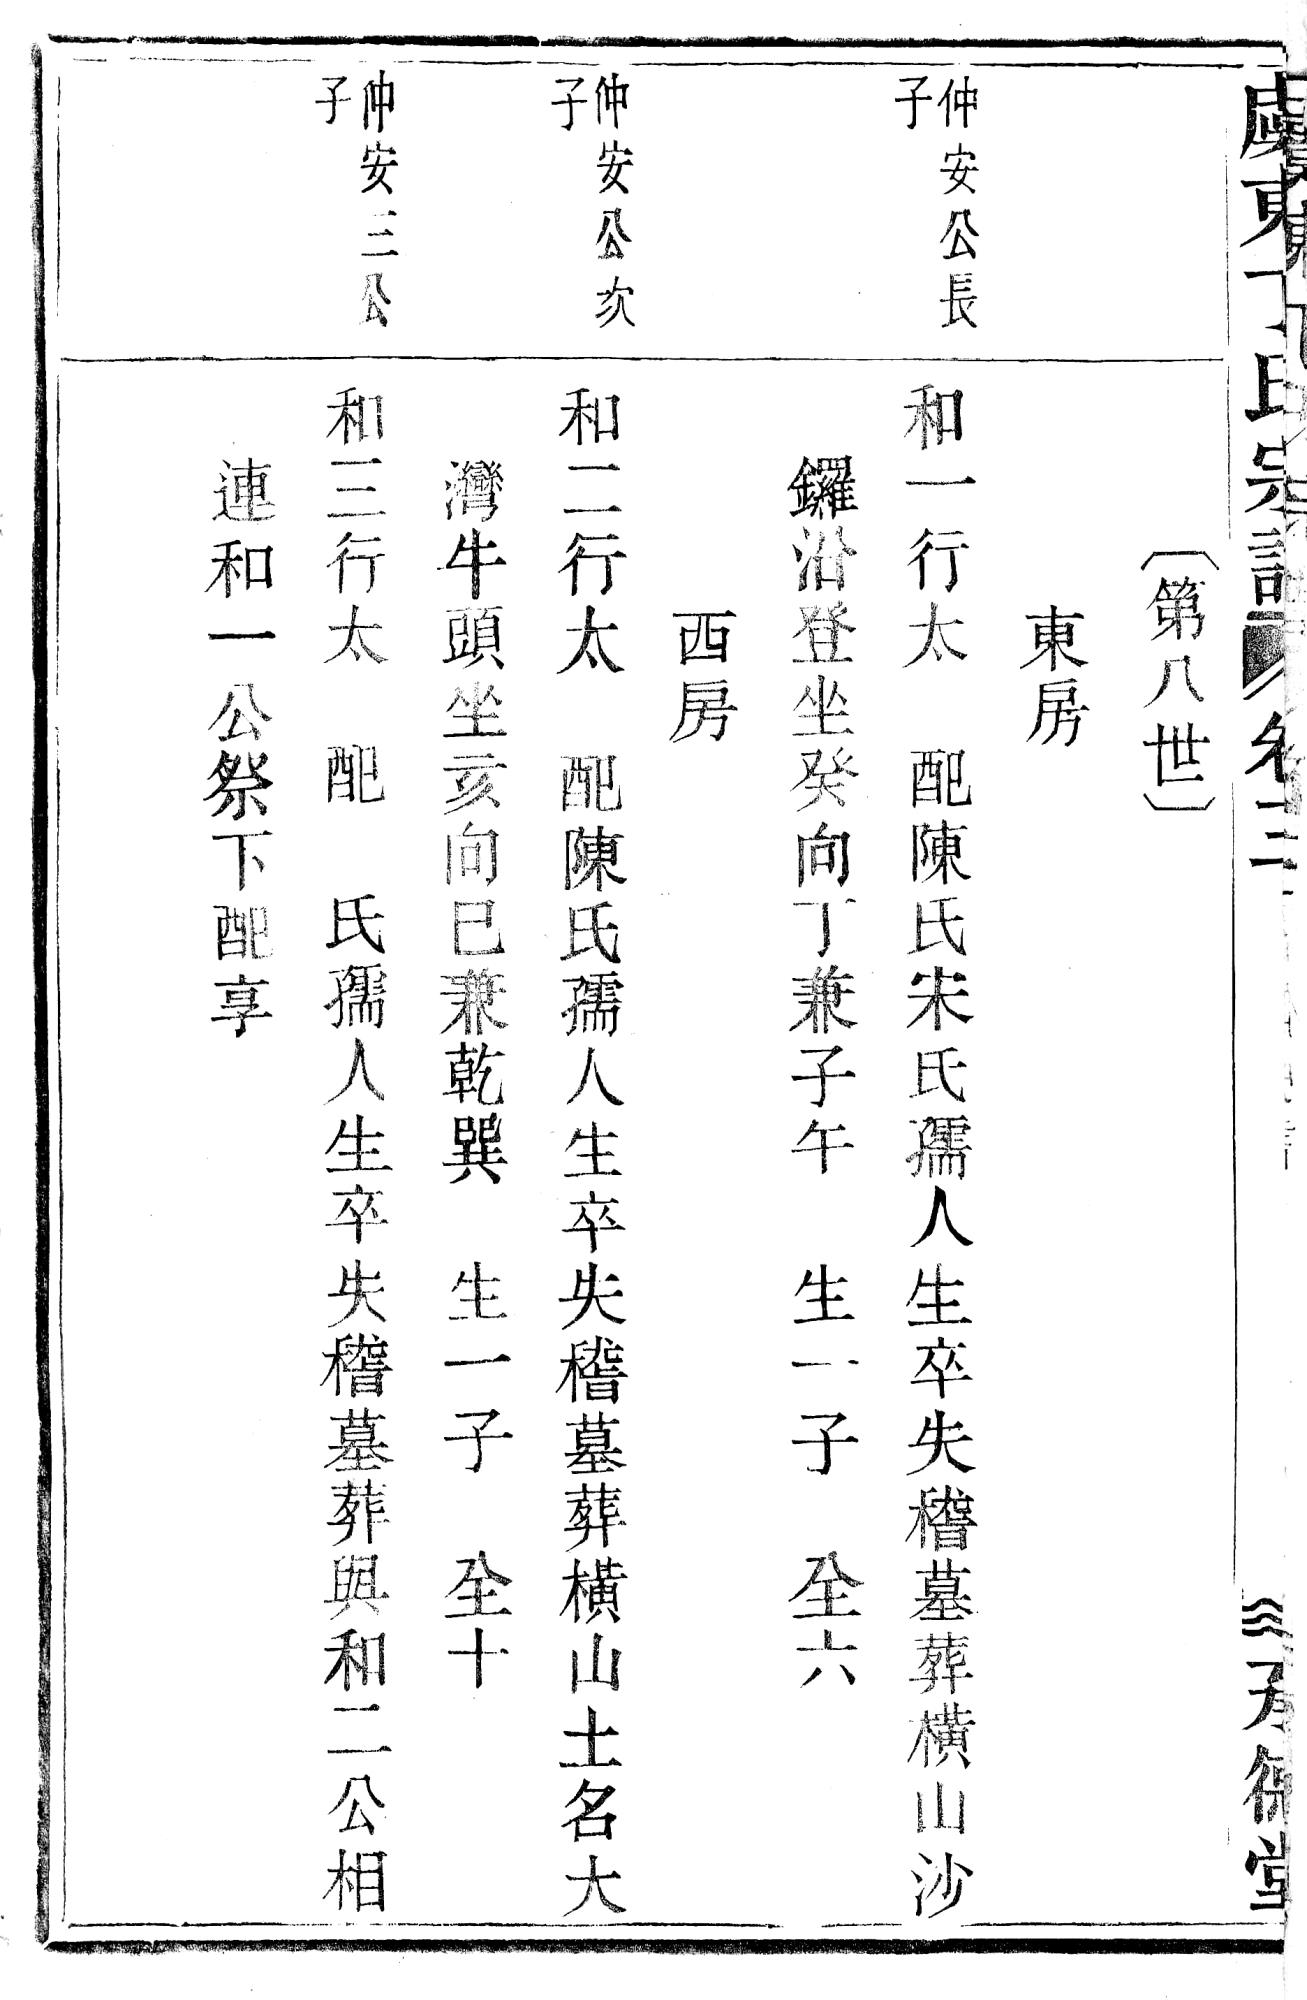 虞東丁氏宗譜 卷三 承德堂
〔第八世〕
東房
仲安公長子
和一行太 配陳氏宋氏孺人生卒失稽墓葬橫山沙
鑼沿登坐癸向丁兼子午 生一子 㒰六
西房
仲安公次子
和二行太 配陳氏孺人生卒失稽墓葬橫山土名大
灣牛頭坐亥向巳兼乾巽 生一子 㒰十
仲安三公子
和三行太 配 氏孺人生卒失稽墓葬與和二公相
連和一公祭下配享